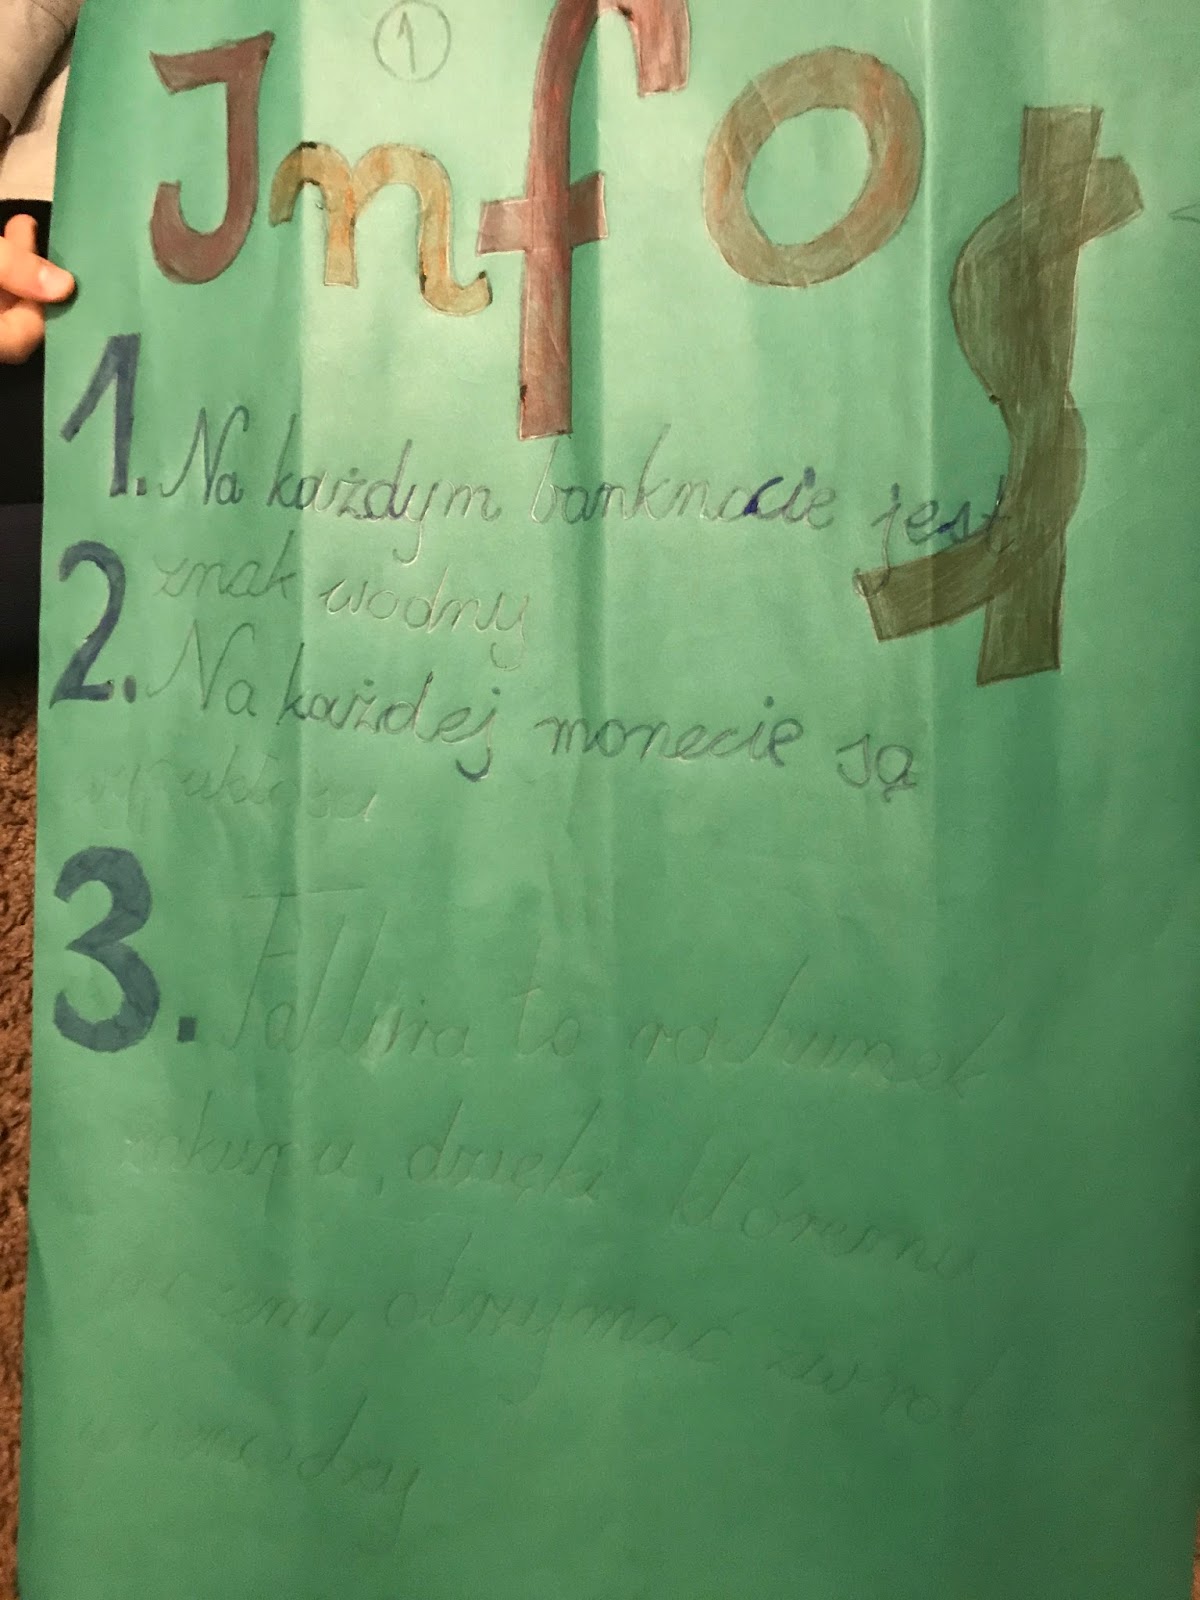 1
Info$
1. Na każdym banknocie jest
znak wodny
2. Na każdej monecie są
3. to rachunek
dzięki któremu
otrzymać zwrot